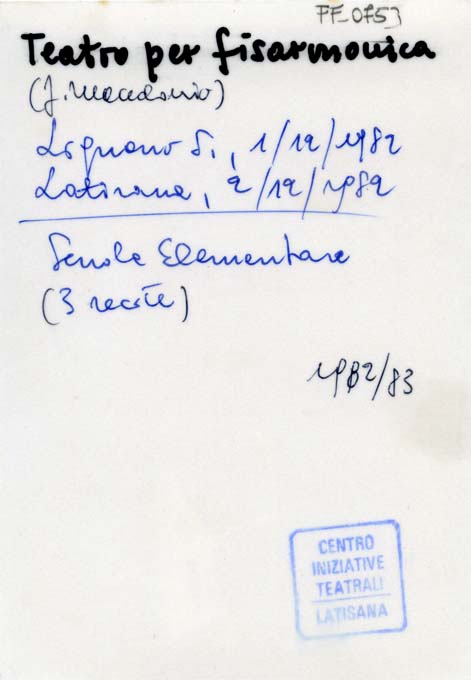 FF-0753
Teatro per fisarmonica
(J. Macedonio)
Lignano S., 1/12/1982
Latisana, 2/12/1982
Scuole Elementare
(3 recite)
1982/83
CENTRO
INIZIATIVE
TEATRALI
LATISANA